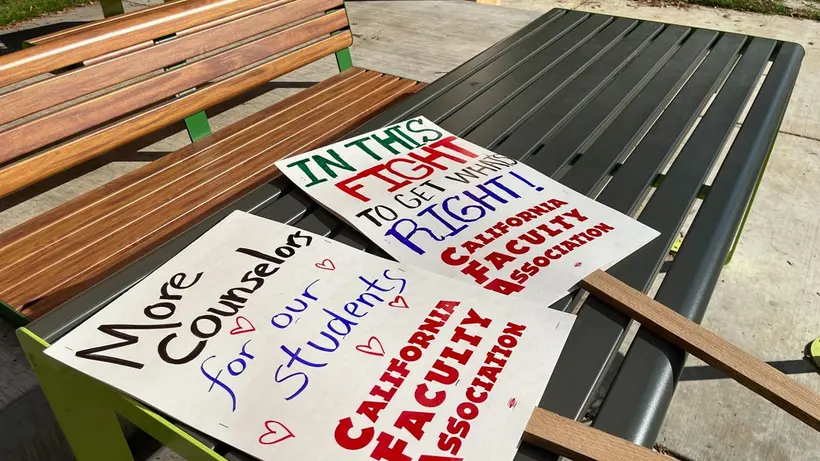 IN THIS
FIGHT
TO GET WHAT'S
RIGHT!
CALIFORNIA
FACULTY
ASSOCIATION
More
Counselors
for our
students
CALIFORNIA
FACULTY
ASSOCIATION